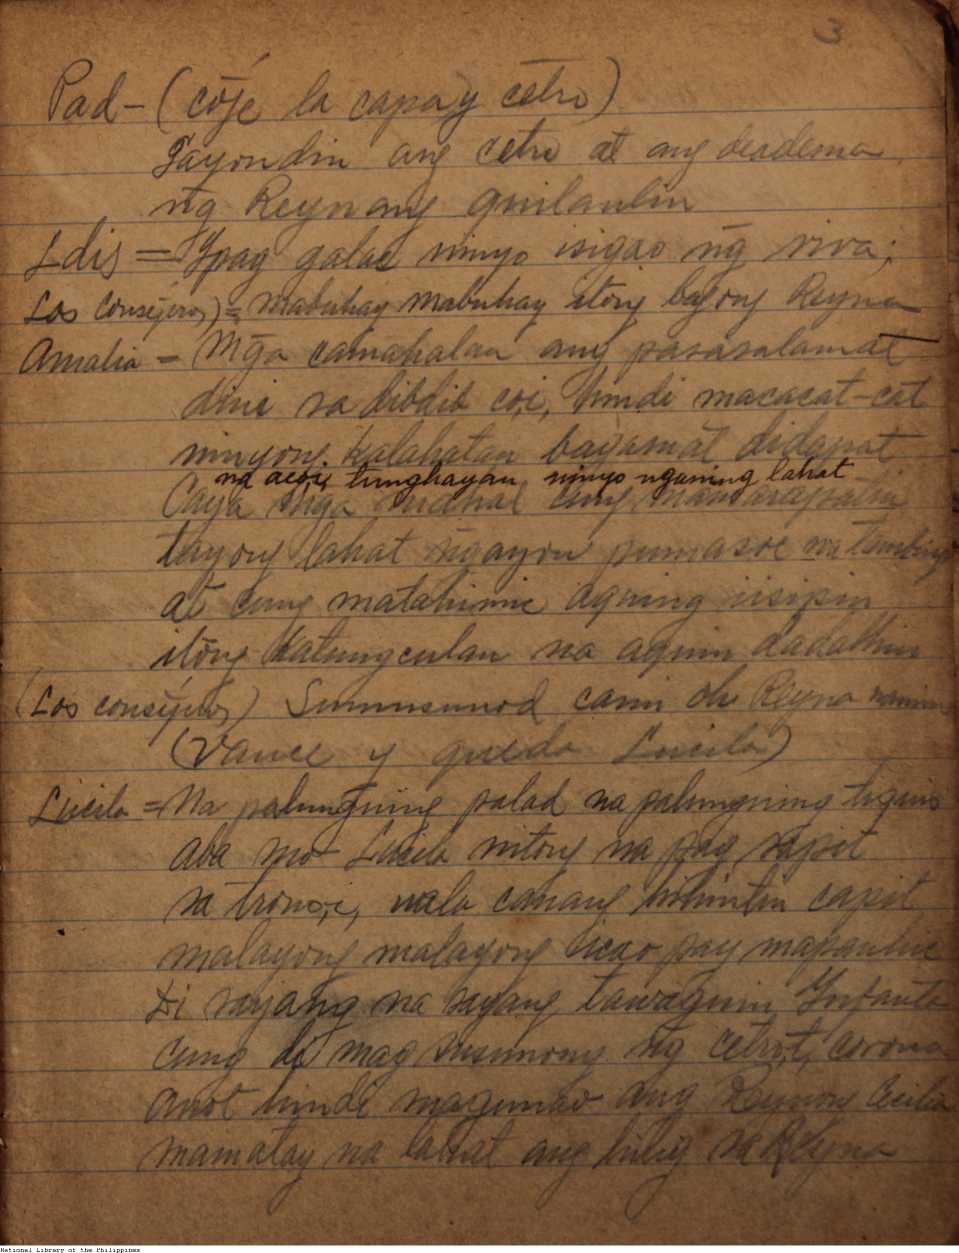 3
Pad - (cóje la capa y cetro)
Tayon din ang cetro at ang deadema
ng Reynang guilauliu
Ldis = Ypag galac ninyo isigao ng viva;
Los consejeros) = mabuhay mabuhay itong bagong Reyna
Amalia = Mga camahalan ang pasasalamat
dini sa dibdib co,i, hindi macacat-cat
ninyong kalahatan bagamat didapat
na aco,i, tunghayan ninyo nganing lahat
Caya mga mahal cung
tayong lahat ngayon pumasoc na
at cung matahimic aquing iisipin
itong katungculan na aquin dadalhin
(Los consejeros) Sumusunod cami oh Reyna namin
(Vance y queda Lucila)
Lucila = Na palungning palad na palungning tiquis
aba mo Lucila nitong na pag sapit
sa trono,i, uala canang hihintin capit
malayong malayong icao pay mapanhic
Di sayang na sayang tawaguin Infanta
cung di mag susunong ng cetro,t, corona
anot hindi magunao ang Reynong Cecilia
mamatay na lahat ang hilig sa Reyna
National Library of the Philippines